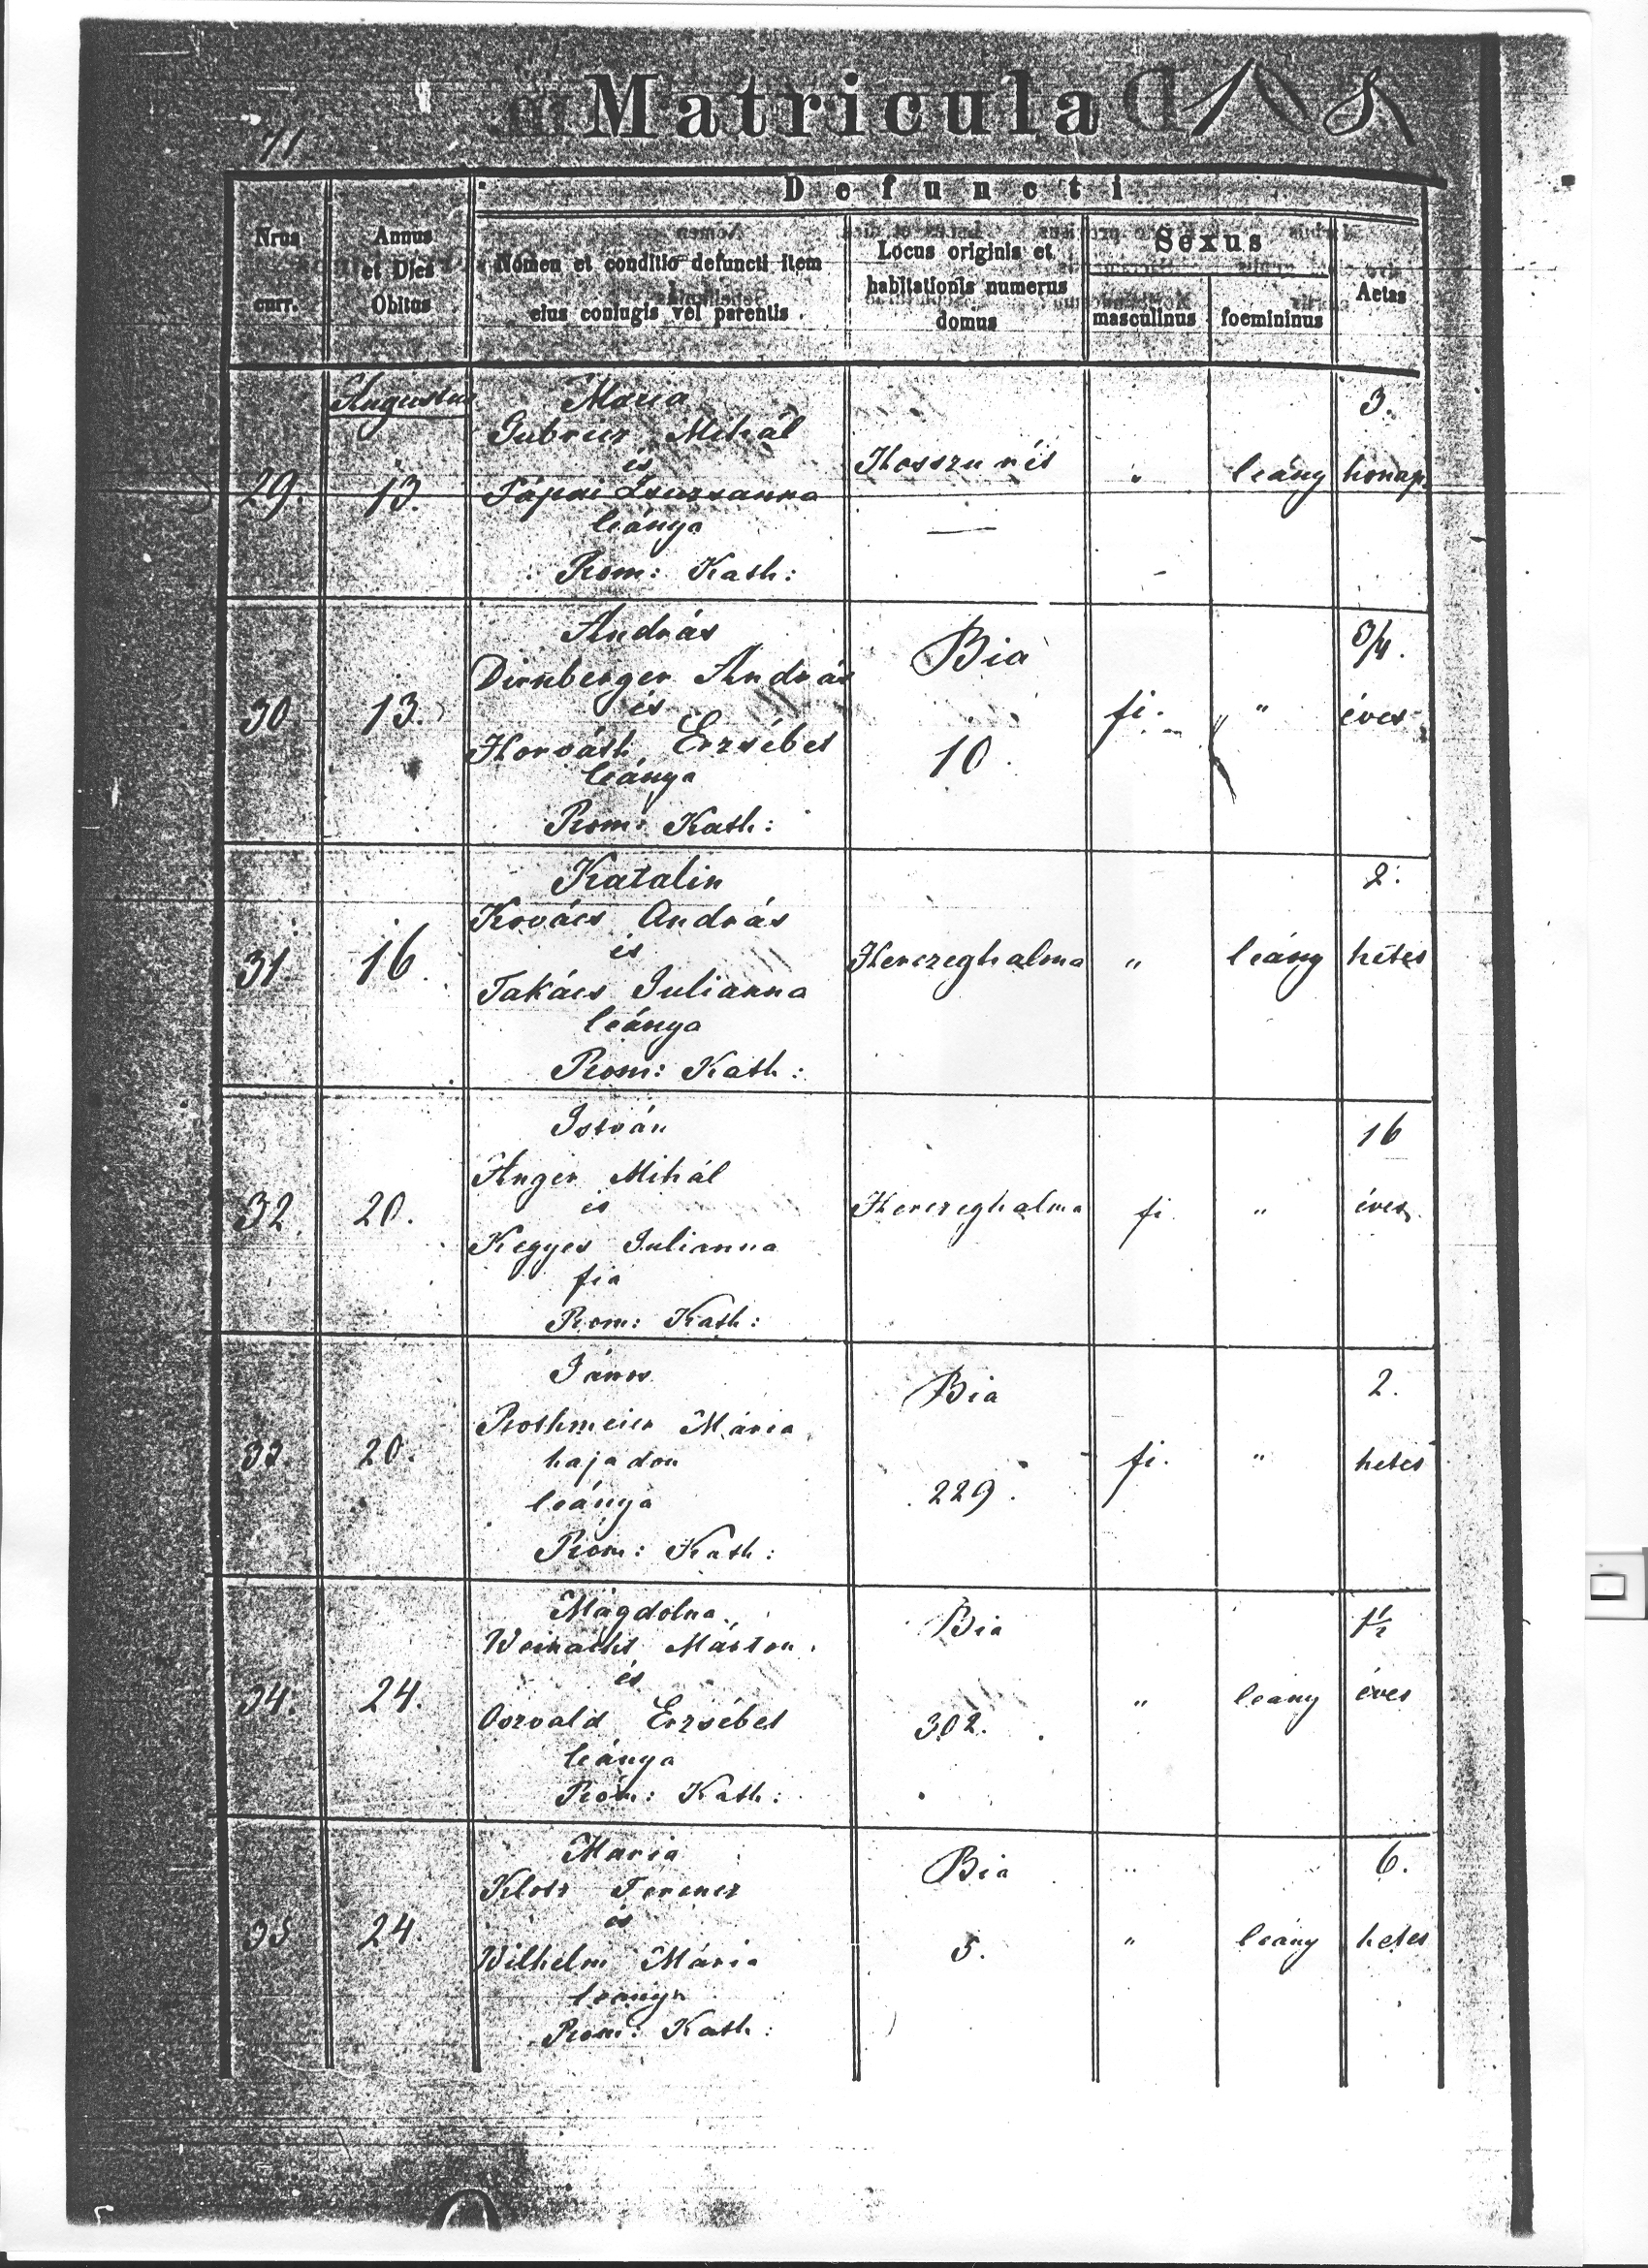 Matricula
71
Defuncti
Nrus
curr.
Annus
et Dies
Obitus
Nomen et conditio defuncti item
eius coniugis vel parentis.
Locus originis et
habitationis numerus
domus
Sexus
masculinus
foemininus
Aetas
Augustus
29.
13.
Maria
Mihál
és
Pápai Zsuzsanna
leánya
Rom: Kath:
Hosszu rét
"
leány
3.
honap.
30
13.
András
Dirnberger András
és
Horváth Erzsébet
leánya
Rom: Kath:
Bia
10.
fi.
"
3/4.
éves
31
16.
Katalin
Kovács András
és
Takács Julianna
leánya
Rom: Kath:
Herczeghalma
"
leány
2.
hetes
32.
20.
István
Anger Mihál
és
Kegyes Julianna
fia
Rom: Kath:
Herczeghalma
fi
"
16
éves
33.
20.
János
Rothmeier Mária
hajadon
leánya
Rom: Kath:
Bia
229.
fi.
"
2.
hetes
34.
24.
Magdolna
Márton
és
Oszvald Erzsébet
leánya
Rom: Kath:
Bia
302.
"
leány
1 1/2
éves
35
24.
Maria
Klotz Ferencz
és
Wilhelm Mária
leánya
Rom: Kath:
Bia
5.
"
leány
6.
hetes